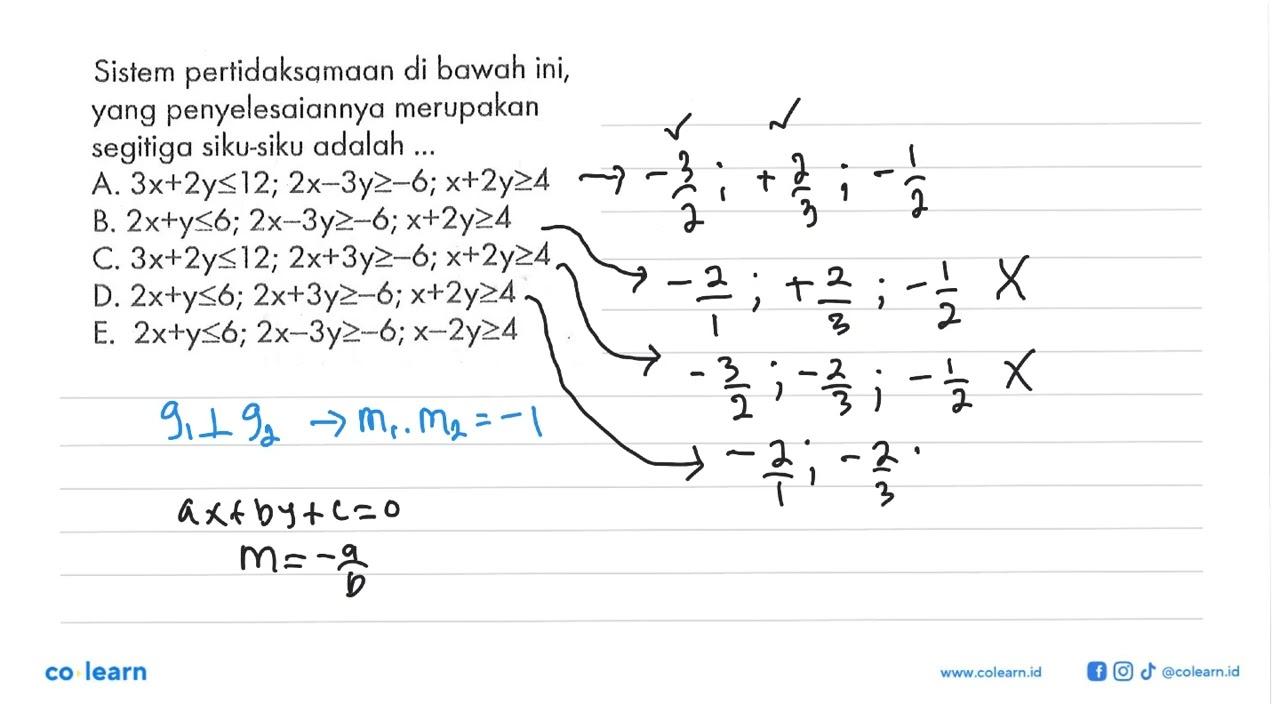 Sistem pertidaksamaan di bawah ini,
yang penyelesaiannya merupakan
segitiga siku-siku adalah ...
A. 3x+2y≤12; 2x–3y≥–6; x+2y≥4 → -3/2 ; +2/3 ; -1/2
✓ ✓
B. 2x+y≤6; 2x–3y≥–6; x+2y≥4 → -2/1 ; +2/3 ; -1/2 X
C. 3x+2y≤12; 2x+3y≥–6; x+2y≥4 → -3/2 ; -2/3 ; -1/2 X
D. 2x+y≤6; 2x+3y≥–6; x+2y≥4 → -2/1 ; -2/3 .
E. 2x+y≤6; 2x–3y≥–6; x–2y≥4
g₁⊥g₂ → m₁.m₂=-1
ax+by+c=0
m=-a/b
co learn
www.colearn.id
@colearn.id